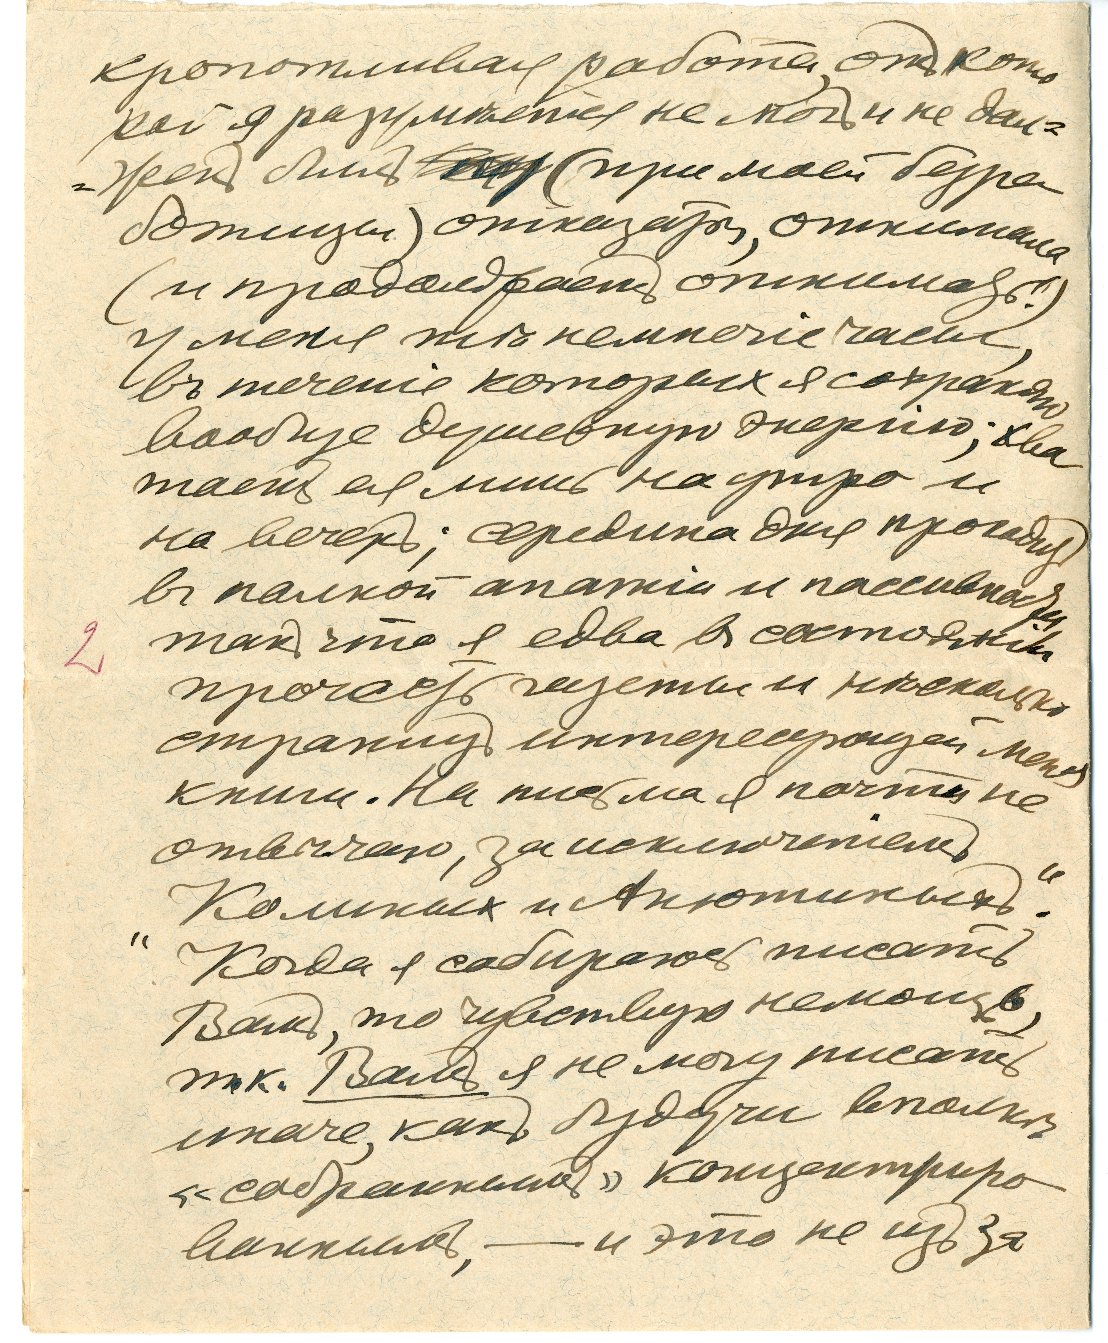 кропотливая работа, отъ кото
рой я разумѣется не могъ и не дол=
=женъ былъ (при моей безра
ботицѣ) отказаться, отнимала
(и продолжаетъ отнимать!)
у меня тѣ немногіе часы,
въ теченіе которыхъ я сохраняю
вообще душевную энергію; хва
таетъ ея лишь на утро и
на вечеръ; середина дня проходитъ
въ полной апатіи и пассивности
такъ что я едва въ состояніи
прочесть газеты и нѣсколько
страницъ интересующей меня
2
книги. На письма я почти не
отвѣчаю, за исключеніемъ
Колиныхъ и Анютиныхъ."
"Когда я собираюсь писать
Вамъ, то чувствую немощь,
т.к. Вамъ я не могу писать
иначе, какъ будучи вполнѣ
«собраннымъ» концентриро
ваннымъ, — и это не изъ за